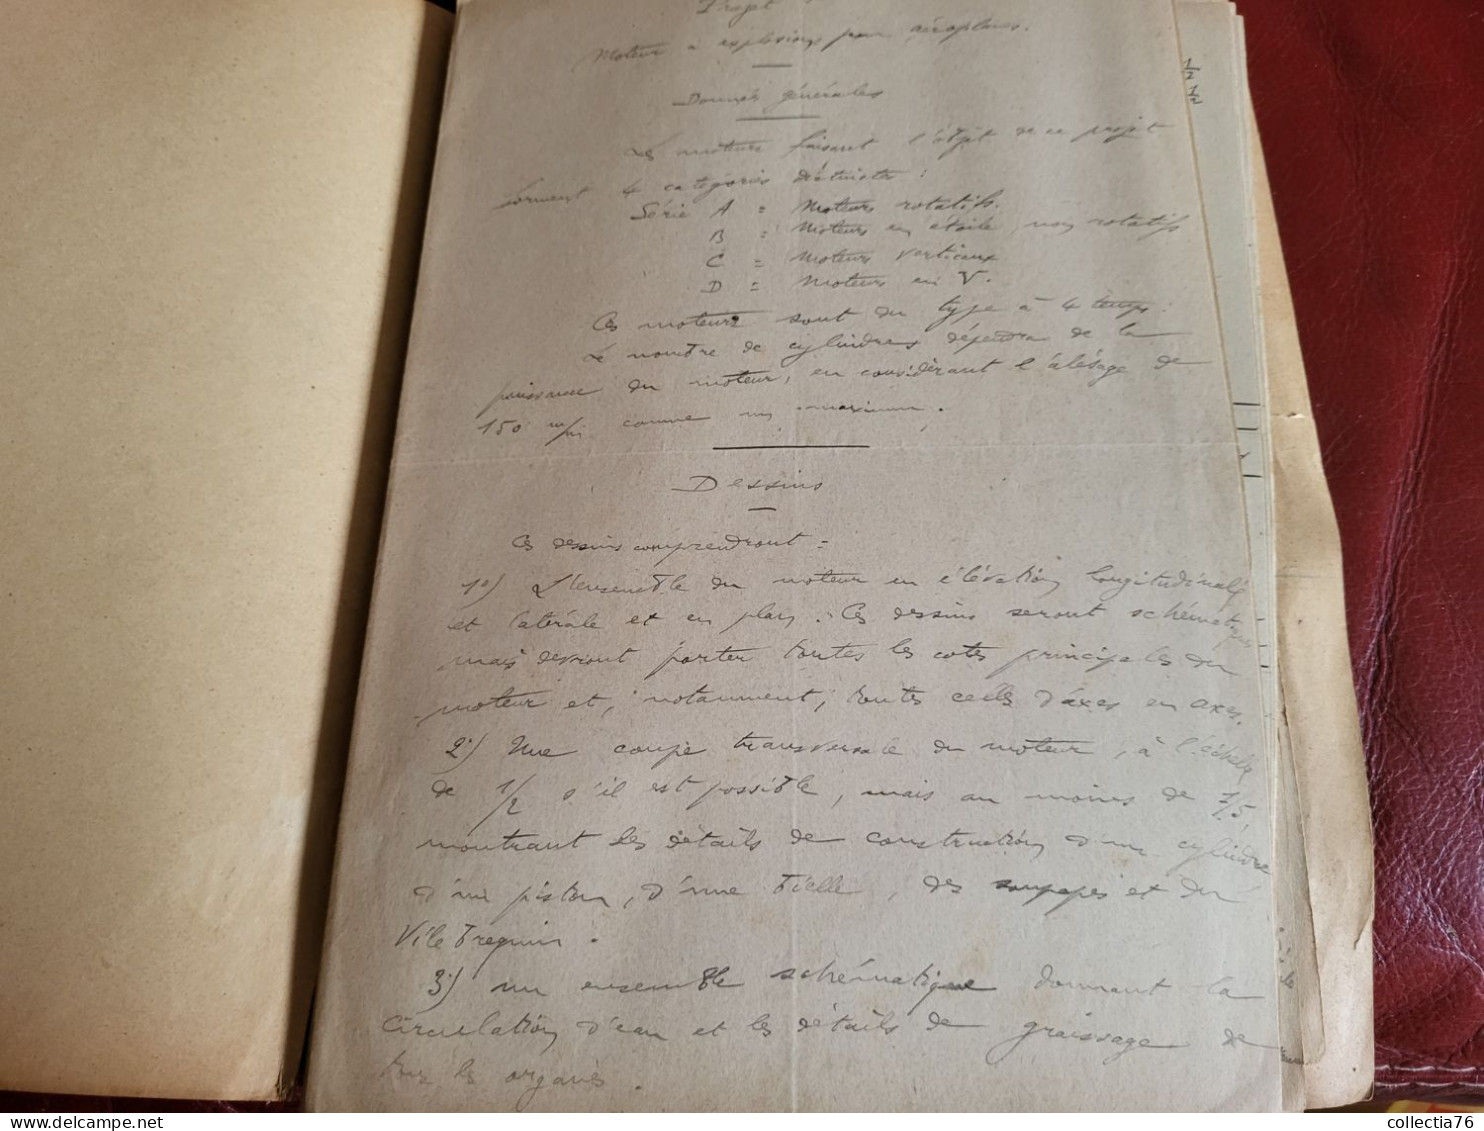 Projet
Moteur à explosions pour aéroplanes.
Données générales
Les moteurs faisant l'objet de ce projet
forment 4 catégories distinctes :
Série A = Moteurs rotatifs.
B = Moteurs en étoile non rotatifs
C = Moteurs verticaux
D = Moteurs en V.
Ces moteurs sont du type à 4 temps.
Le nombre de cylindres dépendra de la
puissance du moteur, en considérant l'alésage de
150 m/m comme un maximum.
Dessins
Ces dessins comprendront =
1°) L'ensemble du moteur en élévation longitudinale
et latérale et en plan. Ces dessins seront schématiques
mais devront porter toutes les cotes principales du
moteur et, notamment, toutes celles d'axes en axes.
2°) Une coupe transversale du moteur, à l'échelle
de 1/2 s'il est possible, mais au moins de 1/5
montrant les détails de construction d'un cylindre
d'un piston, d'une bielle, des soupapes et du
Vilebrequin.
3°) un ensemble schématique donnant la
circulation d'eau et les détails de graissage de
tous les organes.
1/2 1/2
collectia76